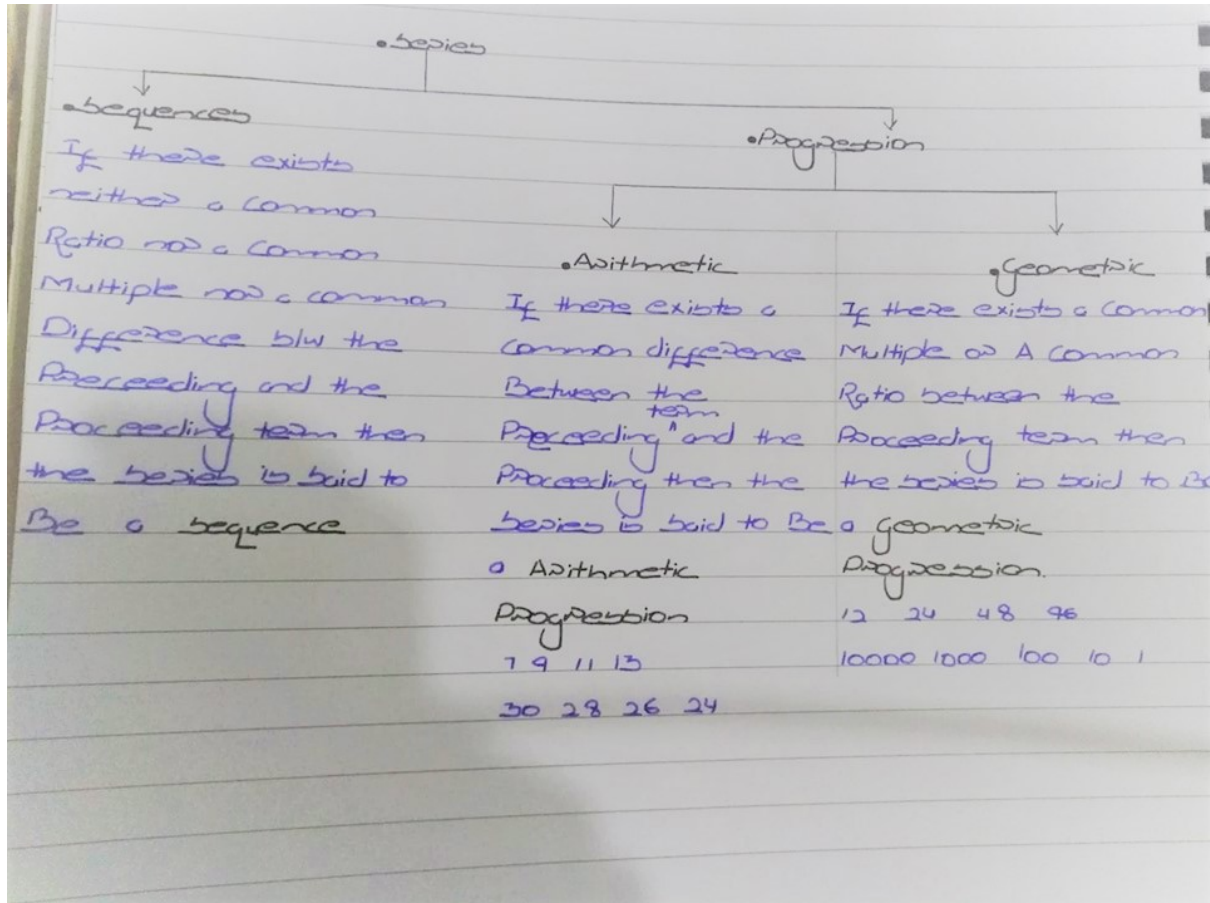 •Series
•Sequences
If there exists
neither a Common
Ratio nor a Common
Multiple nor a common
Difference b/w the
Preceeding and the
Proceeding term then
the series is said to
Be a sequence
•Progression
•Arithmetic
If there exists a
common difference
Between the
Preceeding term and the
Proceeding then the
series is said to Be
a Arithmetic
Progression
7 9 11 13
30 28 26 24
•Geometric
If there exists a Common
Multiple or A Common
Ratio between the
Proceeding term then
the series is said to Be
a Geometric
Progression.
12 24 48 96
10000 1000 100 10 1